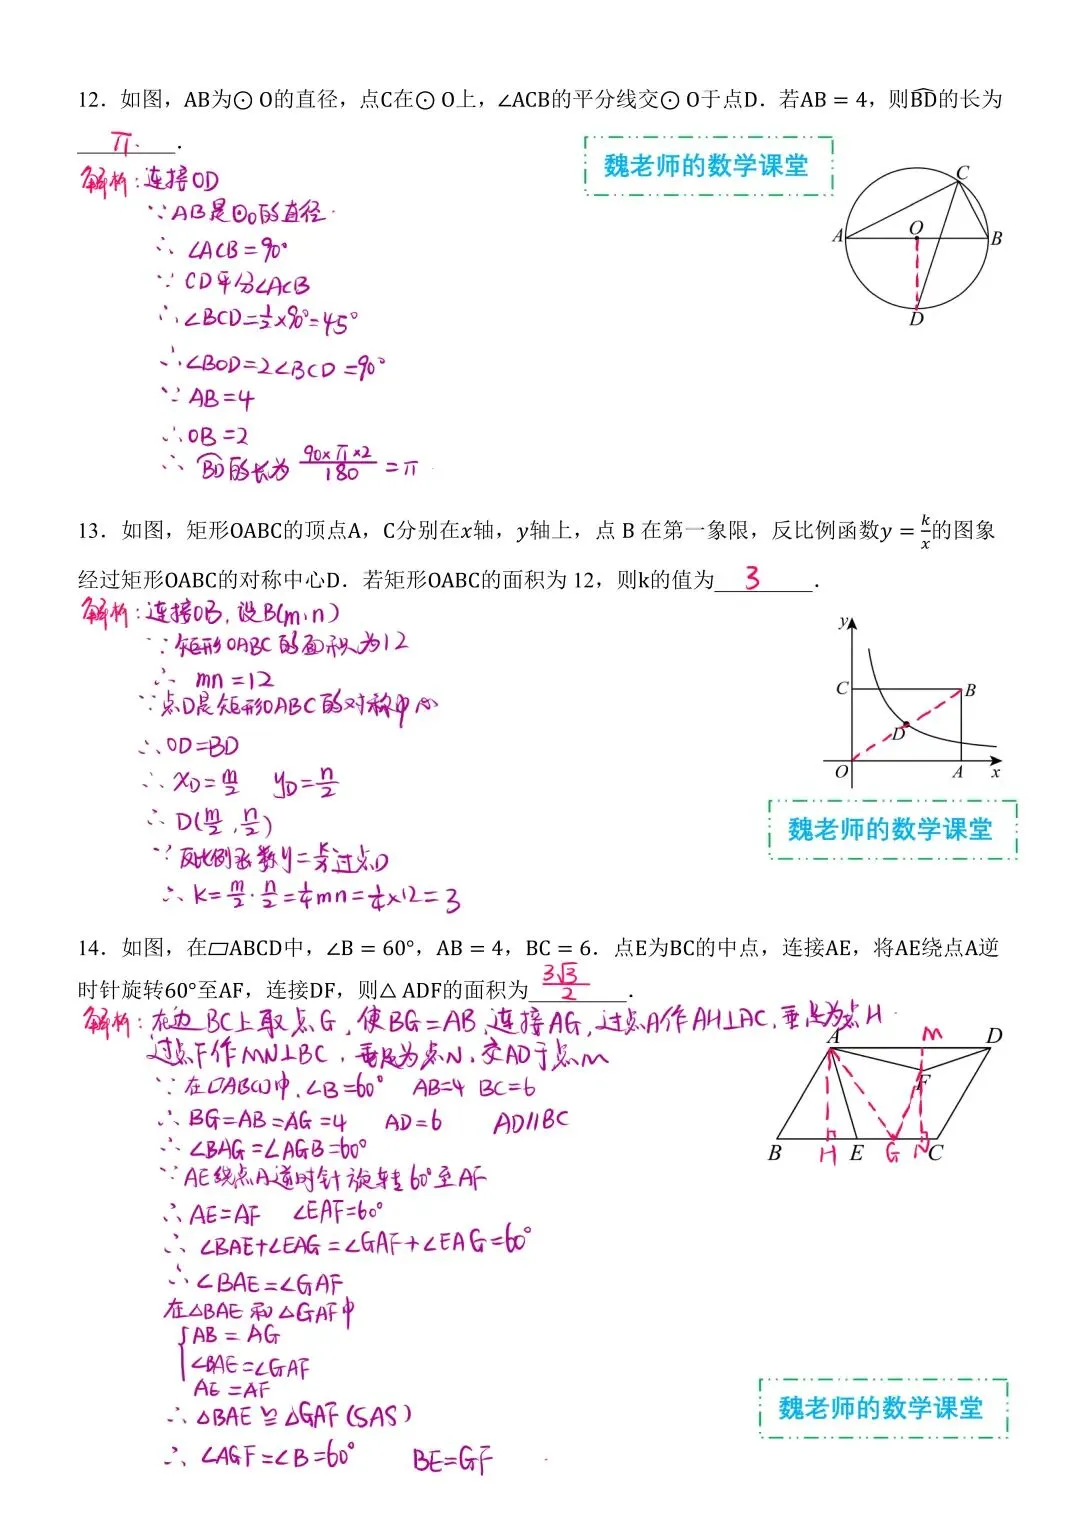 12．如图，AB为⊙ O的直径，点C在⊙ O上，∠ACB的平分线交⊙ O于点D．若AB = 4，则B͡D的长为
π．
魏老师的数学课堂
解析：连接OD
∵AB是⊙O的直径
∴ ∠ACB=90°
∵ CD平分∠ACB
∴∠BCD=½×90°=45°
∴∠BOD=2∠BCD=90°
∵ AB=4
∴OB=2
∴ B͡D的长为 90×π×2/180 = π
C
A
O
B
D
13．如图，矩形OABC的顶点A，C分别在x轴，y轴上，点 B 在第一象限，反比例函数y = k/x的图象
经过矩形OABC的对称中心D．若矩形OABC的面积为 12，则k的值为 3 ．
解析：连接OB，设B(m,n)
∵矩形OABC的面积为12
∴ mn=12
∵点D是矩形OABC的对称中心
∴OD=BD
∴ xD=m/2 yD=n/2
∴ D(m/2,n/2)
∵ 反比例函数y=k/x过点D
∴ k=m/2·n/2=¼mn=¼×12=3
y
C
B
D
O
A
x
魏老师的数学课堂
14．如图，在▱ABCD中，∠B = 60°，AB = 4，BC = 6．点E为BC的中点，连接AE，将AE绕点A逆
时针旋转60°至AF，连接DF，则△ ADF的面积为 3√3/2 ．
解析：在边BC上取点G，使BG=AB，连接AG，过点A作AH⊥BC，垂足为点H
过点F作MN⊥BC，垂足为点N，交AD于点M
∵ 在▱ABCD中，∠B=60° AB=4 BC=6
∴ BG=AB=AG=4 AD=6 AD∥BC
∴ ∠BAG=∠AGB=60°
∵ AE绕点A逆时针旋转60°至AF
∴ AE=AF ∠EAF=60°
∴ ∠BAE+∠EAG=∠GAF+∠EAG=60°
∴ ∠BAE=∠GAF
在△BAE和△GAF中
AB = AG
∠BAE=∠GAF
AE=AF
∴ △BAE≌△GAF(SAS)
∴ ∠AGF=∠B=60° BE=GF
A
M
D
F
B
H
E
G
N
C
魏老师的数学课堂